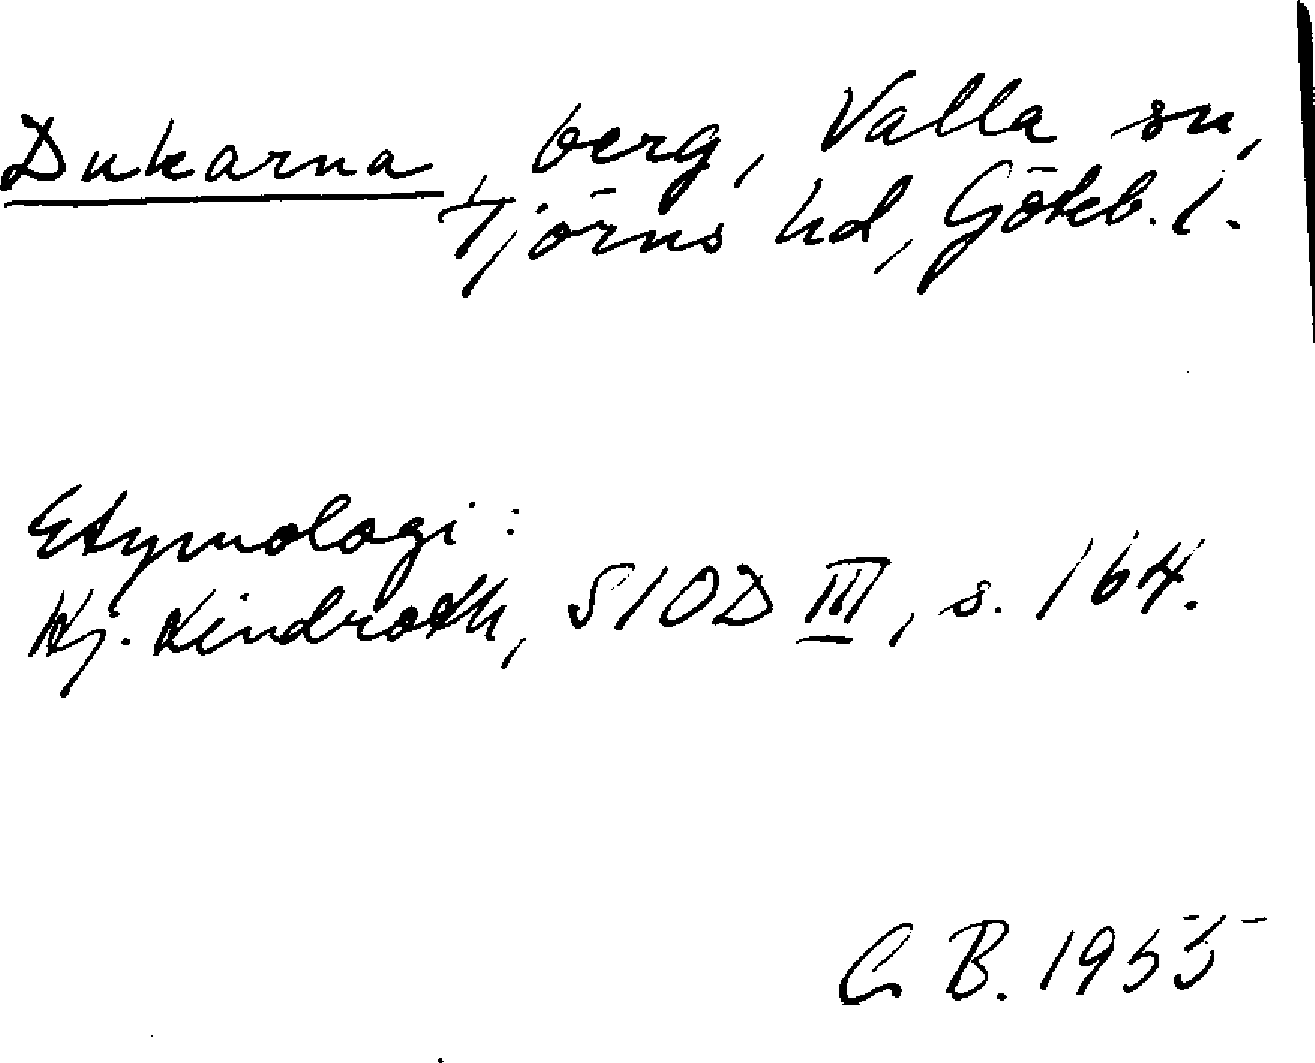 Dukarna, berg, Valla sn,
Tjörns hd, Göteb. l.
Etymologi:
Hj. Lindroth, SIOD III, s. 164.
C B. 1955